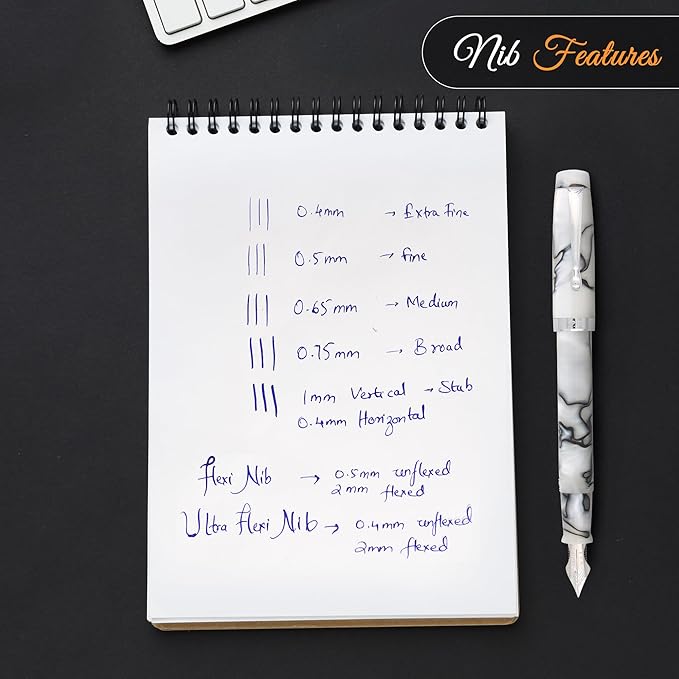 Nib Features
0.4mm → Extra Fine
0.5mm → fine
0.65mm → Medium
0.75mm → Broad
1mm Vertical → Stub
0.4mm Horizontal
flexi Nib → 0.5mm unflexed
2mm flexed
Ultra flexi Nib → 0.4mm unflexed
2mm flexed